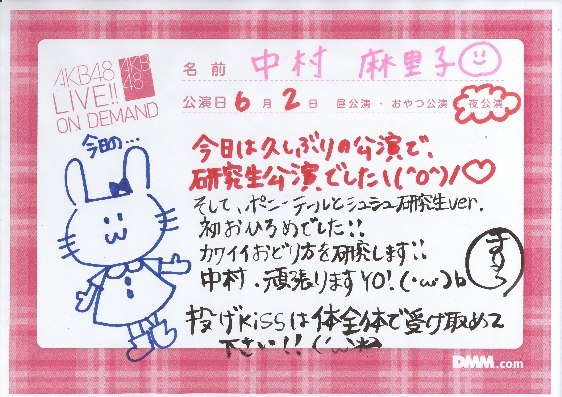 AKB48
LIVE!!
ON DEMAND
AKB
48
名前 中村 麻里子
公演日 6月2日 昼公演・おやつ公演・夜公演
今日の...
今日は久しぶりの公演で、
研究生公演でした\(^o^)/♡
そして、ポニーテールとシュシュ研究生ver.
初おひろめでした!!
カワイイおどり方を研究します!!
中村、頑張りますYO!(・ω・)b
投げKissは体全体で受け取めて
下さい!!
DMM.com